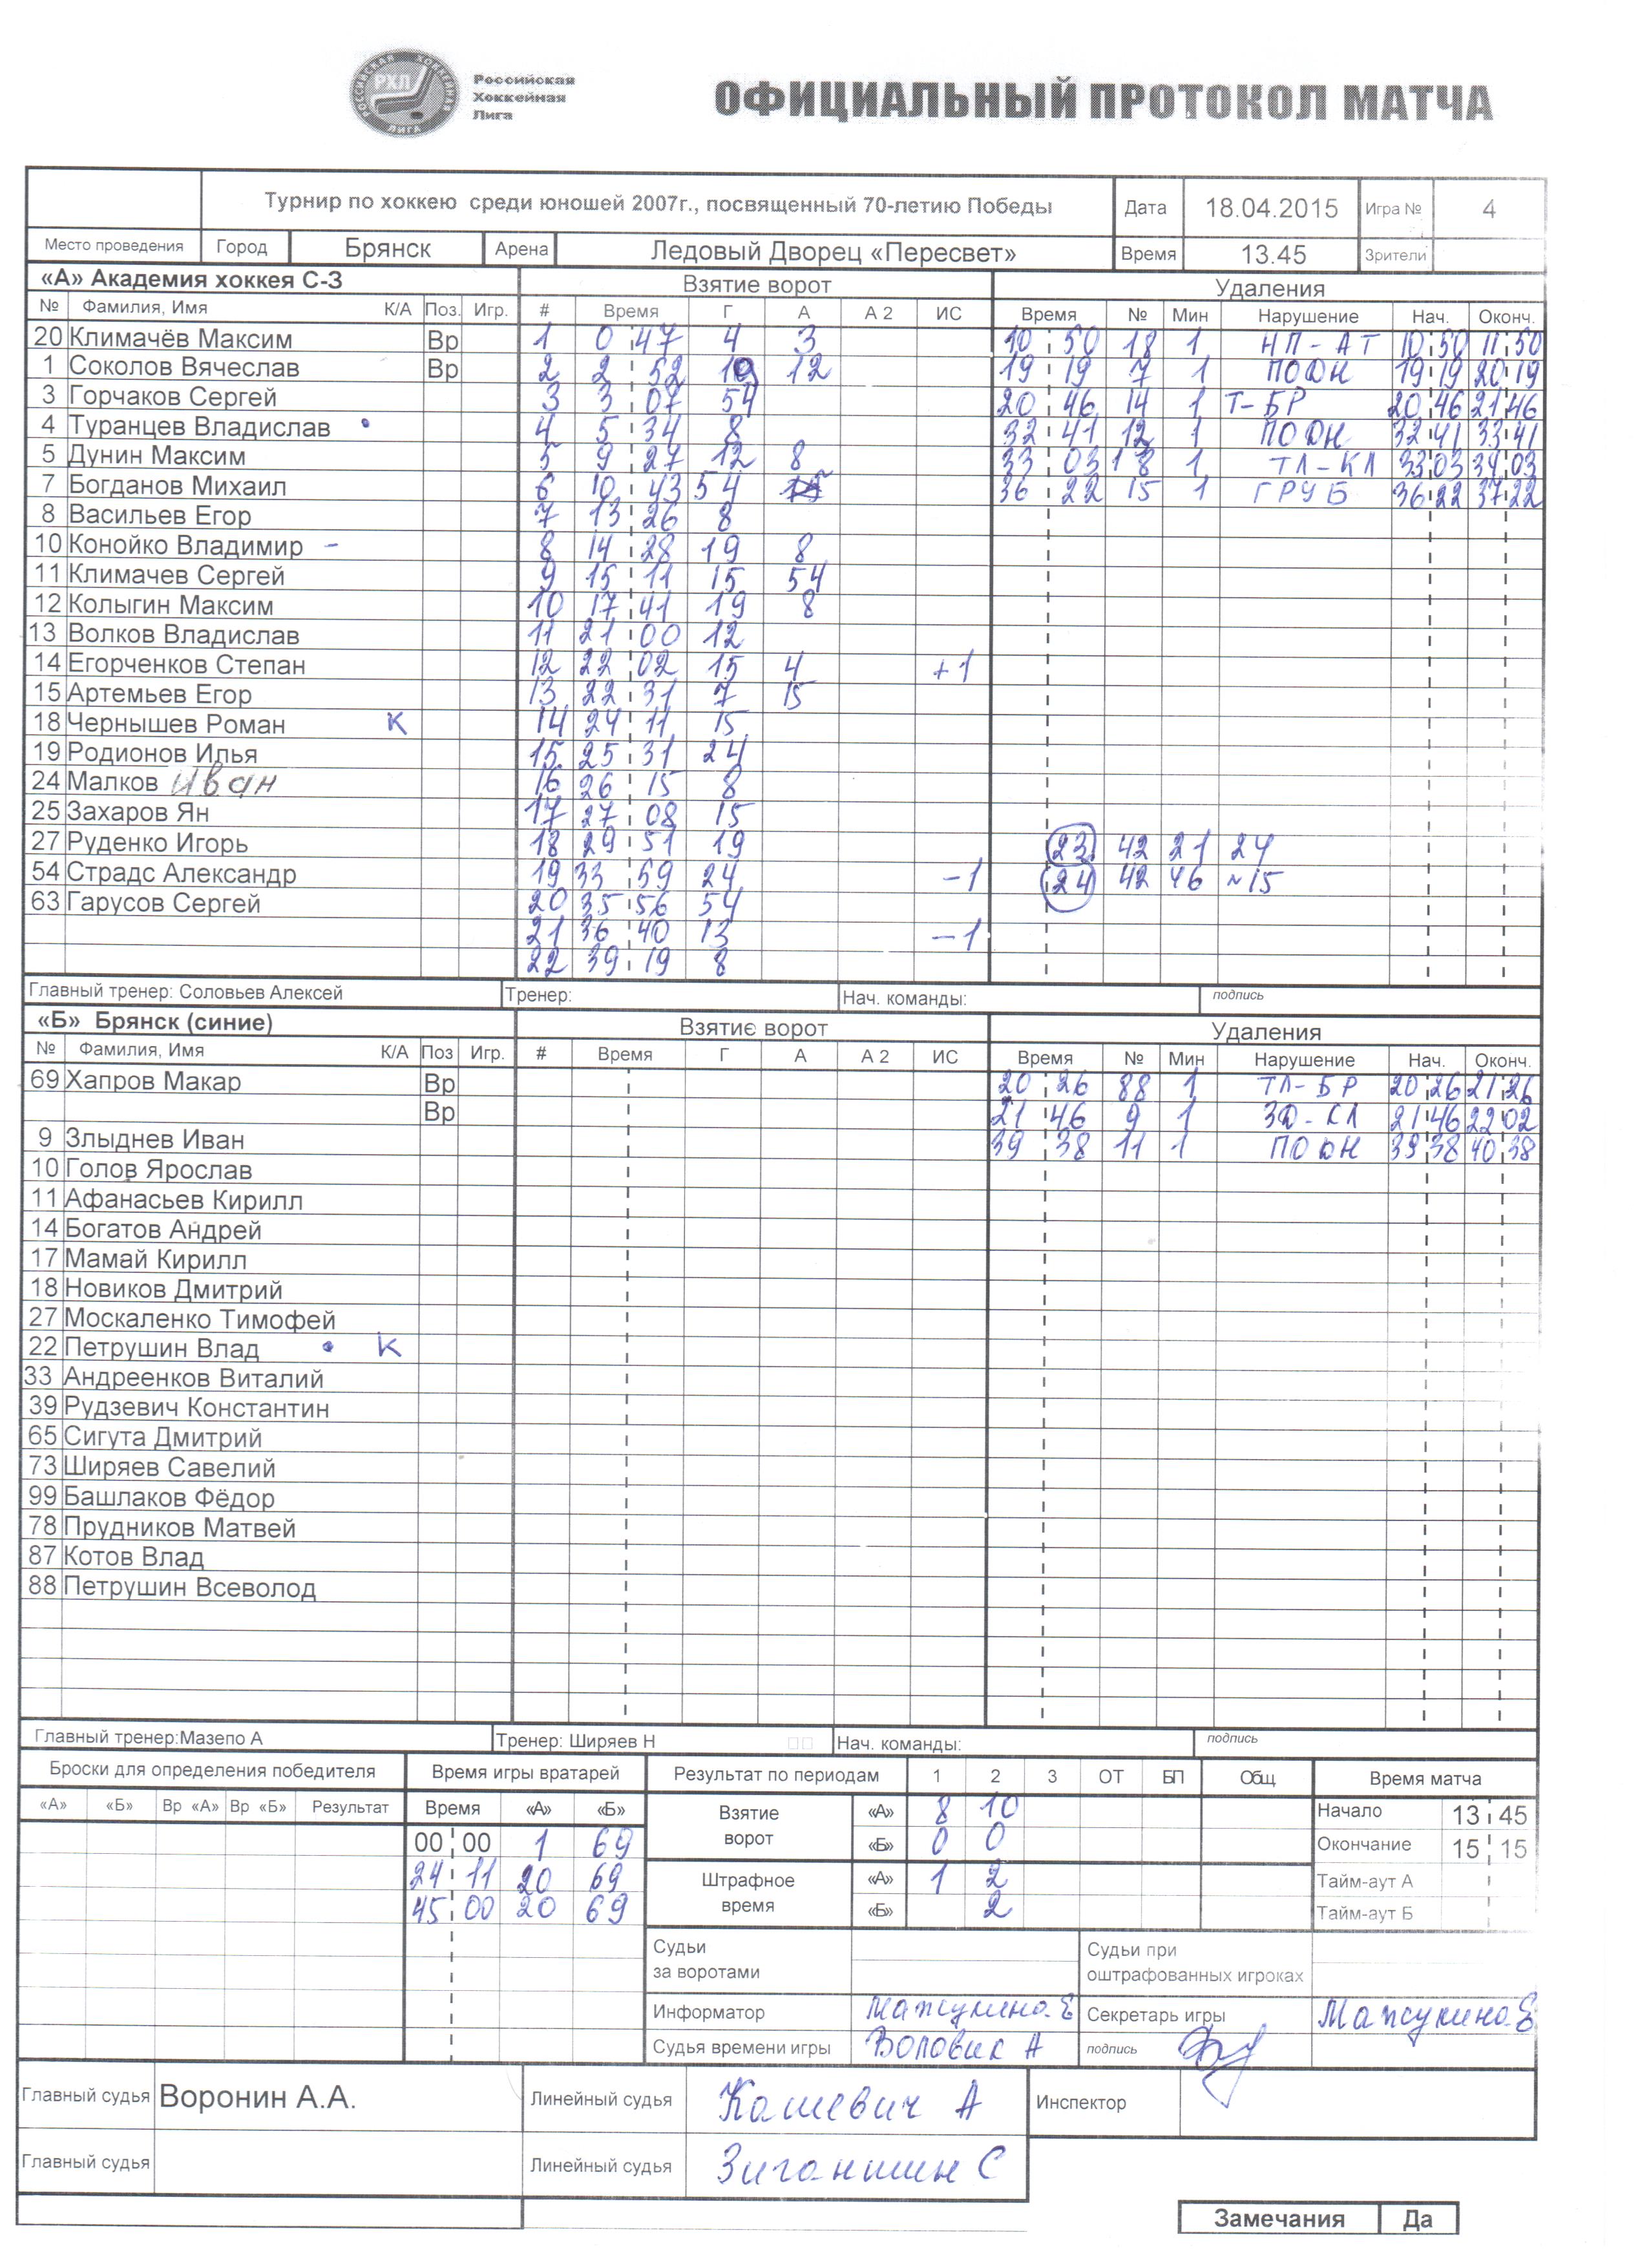 РОССИЙСКАЯ ХОККЕЙНАЯ ЛИГА РХЛ
Российская
Хоккейная
Лига
ОФИЦИАЛЬНЫЙ ПРОТОКОЛ МАТЧА
Турнир по хоккею среди юношей 2007г., посвященный 70-летию Победы Дата 18.04.2015 Игра № 4
Место проведения Город Брянск Арена Ледовый Дворец «Пересвет» Время 13.45 Зрители
«А» Академия хоккея С-З Взятие ворот Удаления
№ Фамилия, Имя К/А Поз. Игр. # Время Г А А 2 ИС Время № Мин Нарушение Нач. Оконч.
20 Климачёв Максим Вр 1 0 47 4 3 10 50 18 1 НП-АТ 10 50 11 50
1 Соколов Вячеслав Вр 2 2 52 19 12 19 19 7 1 ПОДН 19 19 20 19
3 Горчаков Сергей 3 3 07 54 20 46 14 1 Т-БР 20 46 21 46
4 Туранцев Владислав 4 5 34 8 32 41 12 1 ПОДН 32 41 33 41
5 Дунин Максим 5 9 27 12 8 33 03 18 1 ТЛ-КЛ 33 03 34 03
7 Богданов Михаил 6 10 43 54 36 22 15 1 ГРУБ 36 22 37 22
8 Васильев Егор 7 13 26 8
10 Конойко Владимир - 8 14 28 19 8
11 Климачев Сергей 9 15 11 15 54
12 Колыгин Максим 10 17 41 19 8
13 Волков Владислав 11 21 00 12
14 Егорченков Степан 12 22 02 15 4 +1
15 Артемьев Егор 13 22 31 7 15
18 Чернышев Роман К 14 24 11 15
19 Родионов Илья 15 25 31 24
24 Малков Иван 16 26 15 8
25 Захаров Ян 17 27 08 15
27 Руденко Игорь 18 29 51 19 23 42 21 24
54 Страдс Александр 19 33 59 24 -1 24 42 46 ~15
63 Гарусов Сергей 20 35 56 54
21 36 40 13 -1
22 39 19 8
Главный тренер: Соловьев Алексей Тренер: Нач. команды: подпись
«Б» Брянск (синие) Взятие ворот Удаления
№ Фамилия, Имя К/А Поз Игр. # Время Г А А 2 ИС Время № Мин Нарушение Нач. Оконч.
69 Хапров Макар Вр 20 26 88 1 ТЛ-БР 20 26 21 26
Вр 21 46 9 1 ЗД-КЛ 21 46 22 02
9 Злыднев Иван 39 38 11 1 ПОДН 39 38 40 38
10 Голов Ярослав
11 Афанасьев Кирилл
14 Богатов Андрей
17 Мамай Кирилл
18 Новиков Дмитрий
27 Москаленко Тимофей
22 Петрушин Влад К
33 Андреенков Виталий
39 Рудзевич Константин
65 Сигута Дмитрий
73 Ширяев Савелий
99 Башлаков Фёдор
78 Прудников Матвей
87 Котов Влад
88 Петрушин Всеволод
Главный тренер:Мазепо А Тренер: Ширяев Н Нач. команды: подпись
Броски для определения победителя Время игры вратарей Результат по периодам 1 2 3 ОТ БП Общ Время матча
«А» «Б» Вр «А» Вр «Б» Результат Время «А» «Б» Взятие ворот «А» 8 10 Начало 13 45
00 00 1 69 «Б» 0 0 Окончание 15 15
24 11 20 69 Штрафное время «А» 1 2 Тайм-аут А
45 00 20 69 «Б» 2 Тайм-аут Б
Судьи за воротами Судьи при оштрафованных игроках
Информатор Мажукина Е Секретарь игры Мажукина Е
Судья времени игры Воловик А подпись
Главный судья Воронин А.А. Линейный судья Кашевич А Инспектор
Главный судья Линейный судья Зиганшин С
Замечания Да